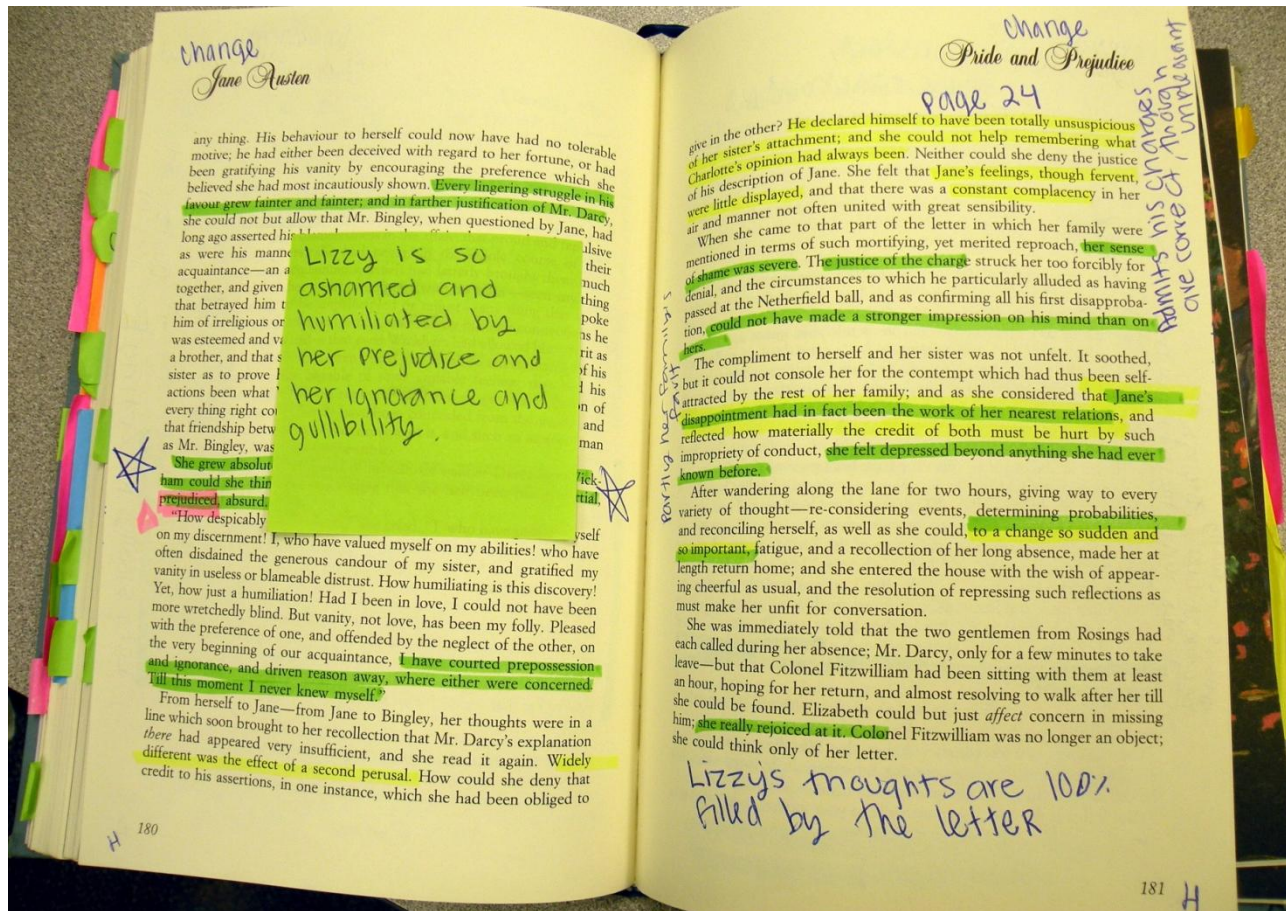 change
Jane Austen
any thing. His behaviour to herself could now have had no tolerable
motive; he had either been deceived with regard to her fortune, or had
been gratifying his vanity by encouraging the preference which she
believed she had most incautiously shown. Every lingering struggle in his
favour grew fainter and fainter; and in farther justification of Mr. Darcy,
she could not but allow that Mr. Bingley, when questioned by Jane, had
long ago asserted his
as were his manne
acquaintance—an a
together, and given
that betrayed him t
him of irreligious or
was esteemed and va
a brother, and that s
sister as to prove h
actions been what
every thing right cou
that friendship betw
as Mr. Bingley, was
She grew absolut
ham could she thin
prejudiced, absurd.
ulsive
their
much
thing
poke
ns he
rit as
f his
d his
n of
and
man
Wick-
rtial.
Lizzy is so
ashamed and
humiliated by
her prejudice and
her ignorance and
gullibility.
"How despicably
yself
on my discernment! I, who have valued myself on my abilities! who have
often disdained the generous candour of my sister, and gratified my
vanity in useless or blameable distrust. How humiliating is this discovery!
Yet, how just a humiliation! Had I been in love, I could not have been
more wretchedly blind. But vanity, not love, has been my folly. Pleased
with the preference of one, and offended by the neglect of the other, on
the very beginning of our acquaintance, I have courted prepossession
and ignorance, and driven reason away, where either were concerned.
Till this moment I never knew myself."
From herself to Jane—from Jane to Bingley, her thoughts were in a
line which soon brought to her recollection that Mr. Darcy's explanation
there had appeared very insufficient, and she read it again. Widely
different was the effect of a second perusal. How could she deny that
credit to his assertions, in one instance, which she had been obliged to
180
H
change
Pride and Prejudice
page 24
Admits his charges
are correct, though
unpleasant
give in the other? He declared himself to have been totally unsuspicious
of her sister's attachment; and she could not help remembering what
Charlotte's opinion had always been. Neither could she deny the justice
of his description of Jane. She felt that Jane's feelings, though fervent,
were little displayed, and that there was a constant complacency in her
air and manner not often united with great sensibility.
When she came to that part of the letter in which her family were
mentioned in terms of such mortifying, yet merited reproach, her sense
of shame was severe. The justice of the charge struck her too forcibly for
denial, and the circumstances to which he particularly alluded as having
passed at the Netherfield ball, and as confirming all his first disapproba-
tion, could not have made a stronger impression on his mind than on
hers.
The compliment to herself and her sister was not unfelt. It soothed,
but it could not console her for the contempt which had thus been self-
attracted by the rest of her family; and as she considered that Jane's
disappointment had in fact been the work of her nearest relations, and
reflected how materially the credit of both must be hurt by such
impropriety of conduct, she felt depressed beyond anything she had ever
known before.
partly her family's
fault
After wandering along the lane for two hours, giving way to every
variety of thought—re-considering events, determining probabilities,
and reconciling herself, as well as she could, to a change so sudden and
so important, fatigue, and a recollection of her long absence, made her at
length return home; and she entered the house with the wish of appear-
ing cheerful as usual, and the resolution of repressing such reflections as
must make her unfit for conversation.
She was immediately told that the two gentlemen from Rosings had
each called during her absence; Mr. Darcy, only for a few minutes to take
leave—but that Colonel Fitzwilliam had been sitting with them at least
an hour, hoping for her return, and almost resolving to walk after her till
she could be found. Elizabeth could but just affect concern in missing
him; she really rejoiced at it. Colonel Fitzwilliam was no longer an object;
she could think only of her letter.
Lizzy's thoughts are 100%
filled by the letter
181
H